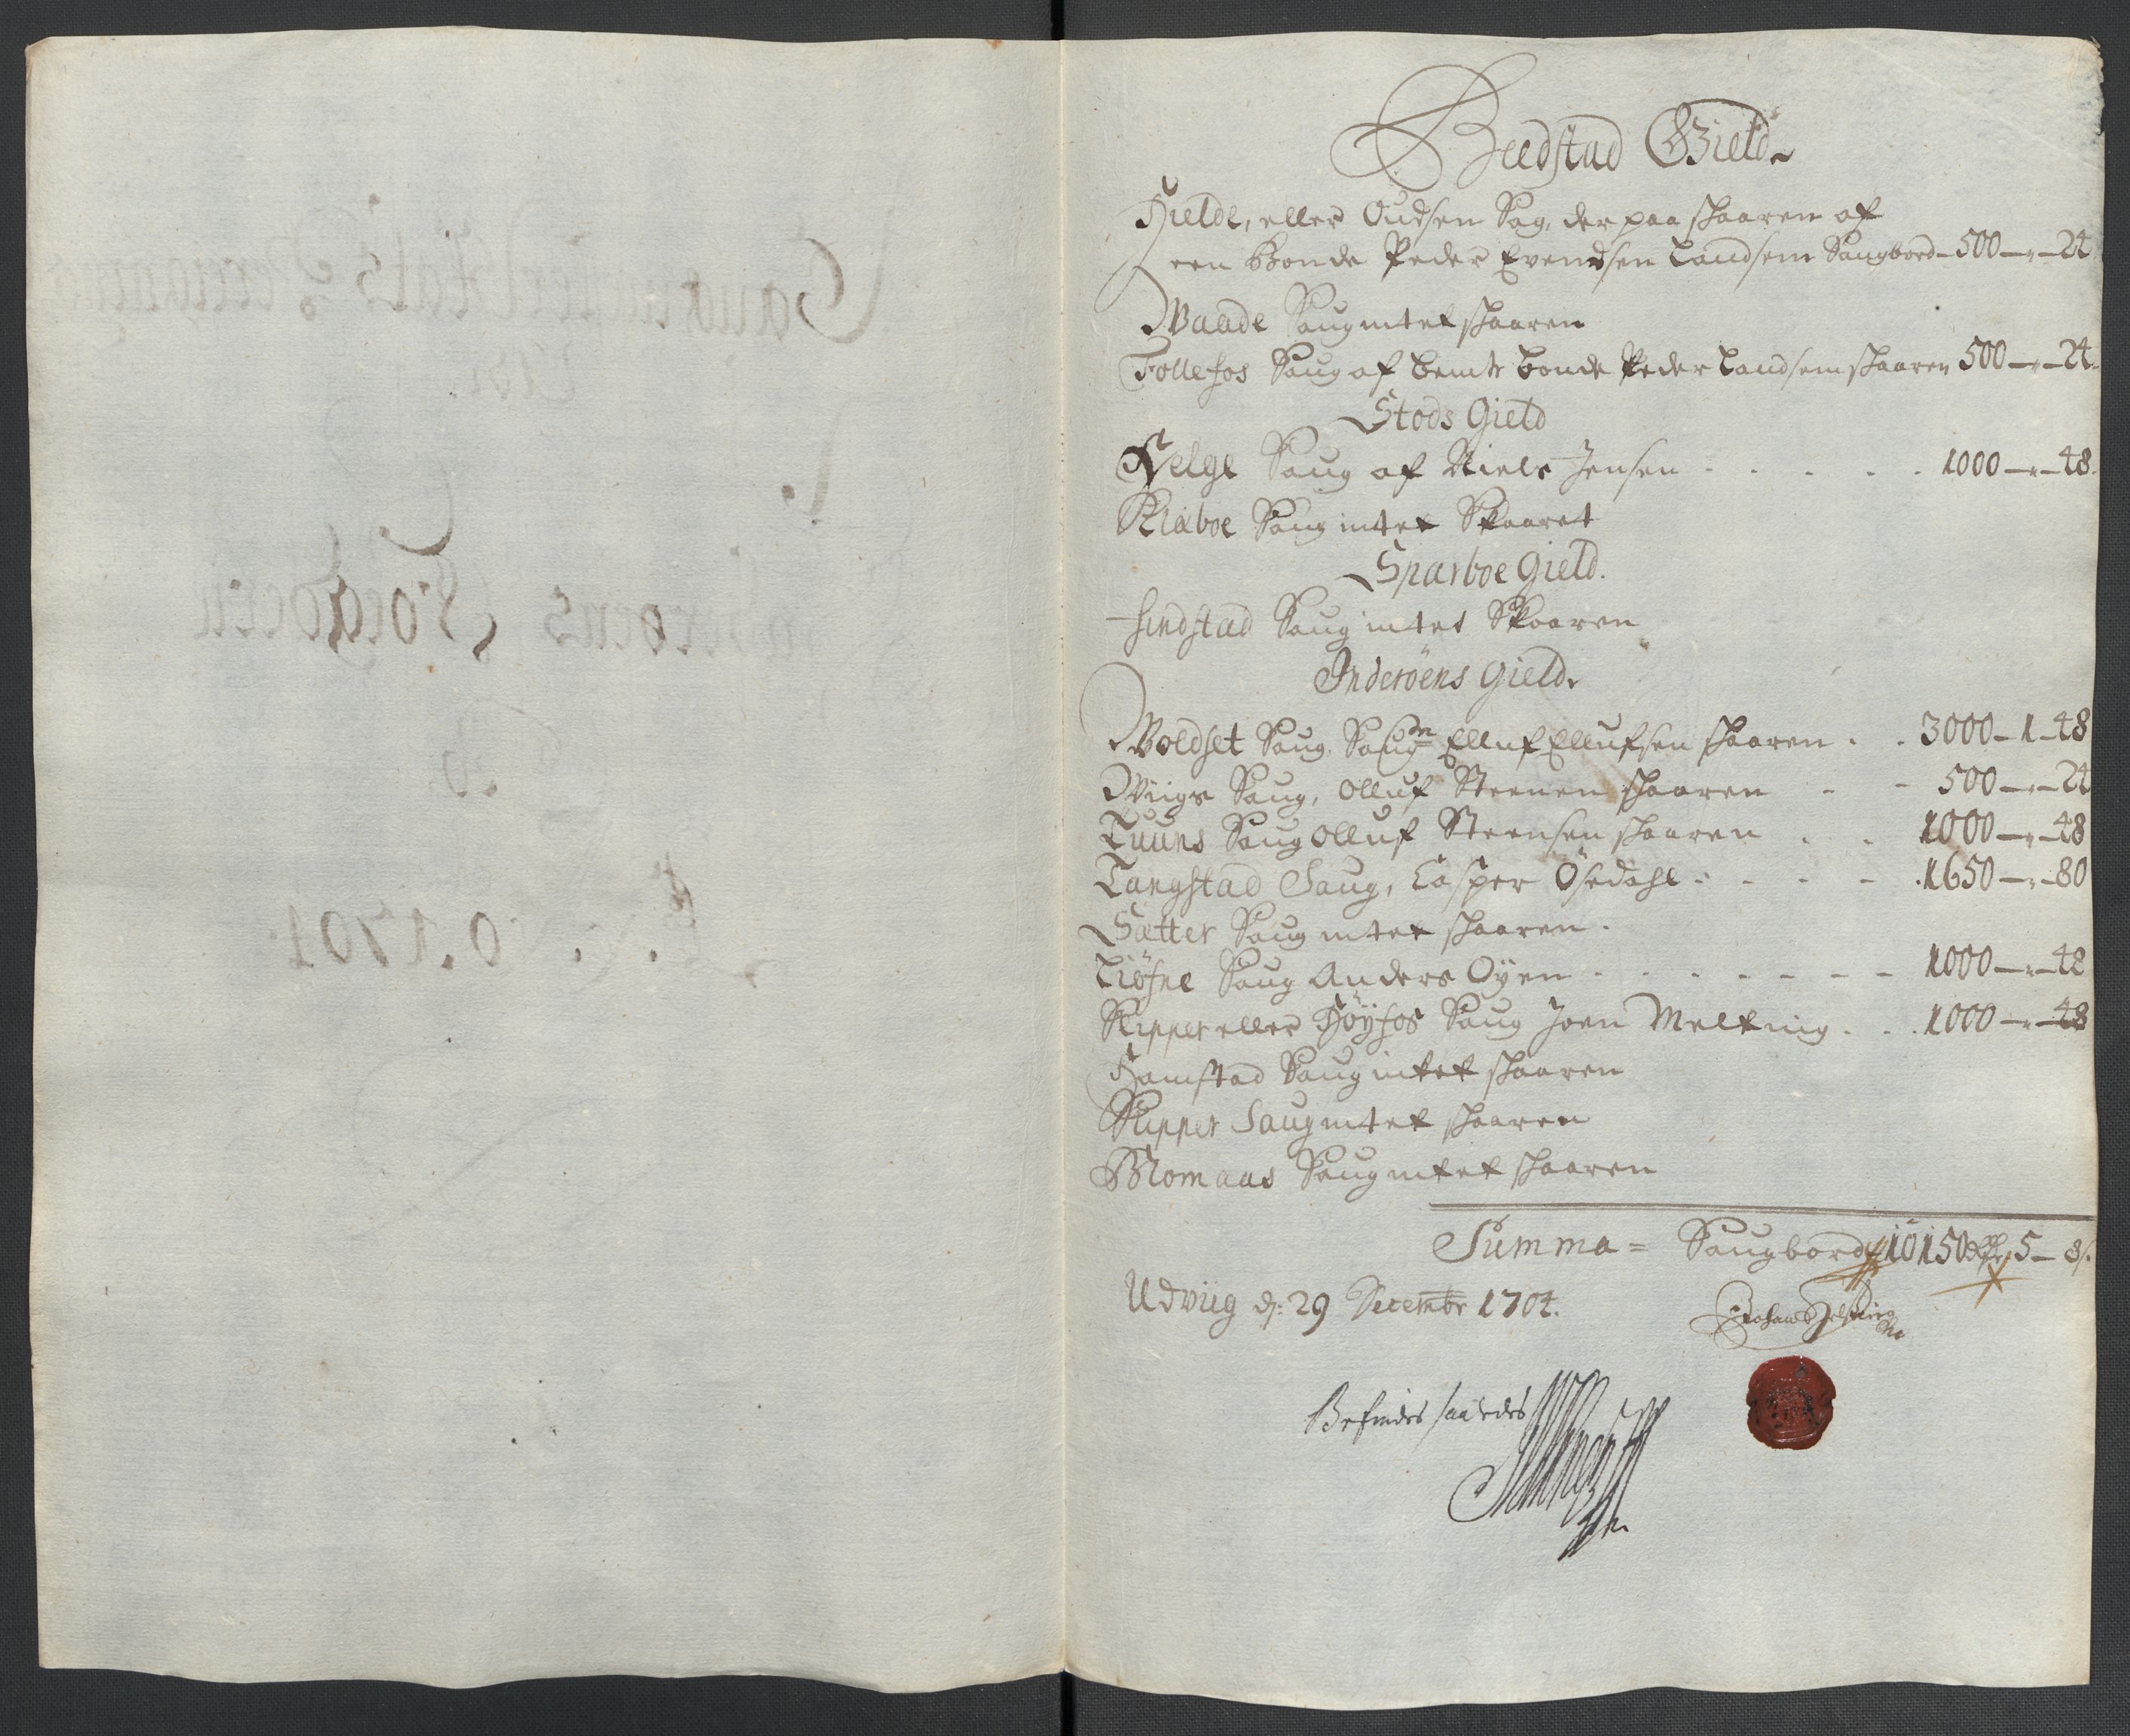 Beedstad Gield.
Hielde, eller Oudsen Sag, der paa skaaren af
een Bonde Peder Evendsen Landsem Saugbord - 500 — " — 24
Waade Saug intet skaaren
Follefos Saug af bemte bonde Peder Landsem skaaren 500 — " — 24.
Stods Gield
Helge Saug af Niels Jensen - - - - - 1000 — " — 48.
Kiæboe Saug intet Skaaret
Sparboe Gield.
Saug intet Skaaren
Inderöens Gield.
Woldset Saug, Elluf Ellufsen skaaren . . 3000 - 1 - 48
Wiigs Saug, Olluf Steenen skaaren - - 500 — " — 24
Tuuns Saug Olluf Steensen skaaren . . 1000 — " — 48
Tangstad Saug, Casper Ösedahl - - - - 1650 — " — 80
Sætter Saug intet skaaren.
Tiöfne Saug Anders Oyen - - - - - - - 1000 — " — 48
Ripper eller Höyfos Saug Joen Melking . . . 1000 — " — 48
Hamstad Saug intet skaaren
Ripper Saug intet skaaren
Blomaas Saug intet skaaren
Summa = Saugbord 10150 5 - 8 s.
Udviig d: 29 Decembr 1704.
Befindes saaledes